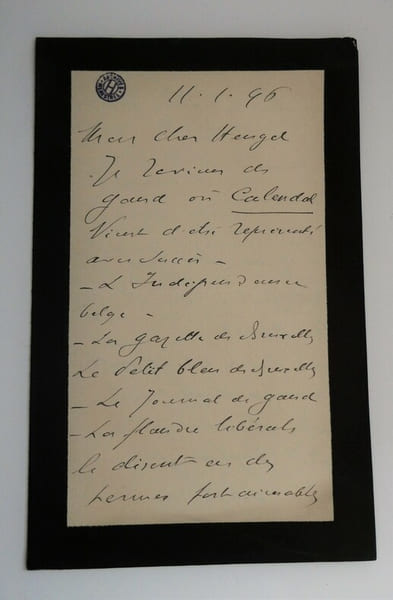 11. 1. 96
Mon cher Heugel
Je reviens de
gand où Calendal
vient d'être représenté
avec succès –
– L'Indépendance
belge –
– La gazette de Bruxelles
Le Petit bleu de Bruxelles
– Le Journal de gand
– La flandre libérale
le disent en des
termes fort aimables